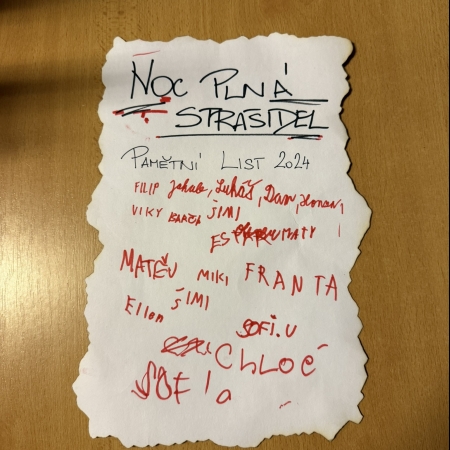 NOC PLNÁ
STRAŠIDEL
PAMĚTNÍ LIST 2024
FILIP Jakub, Lukáš, Dan,
VIKY BARČA ŠIMI
MATY
MATĚJ MIKI FRANTA
Ellen ŠIMI
SOFI.U
CHLOÉ
SOFIa